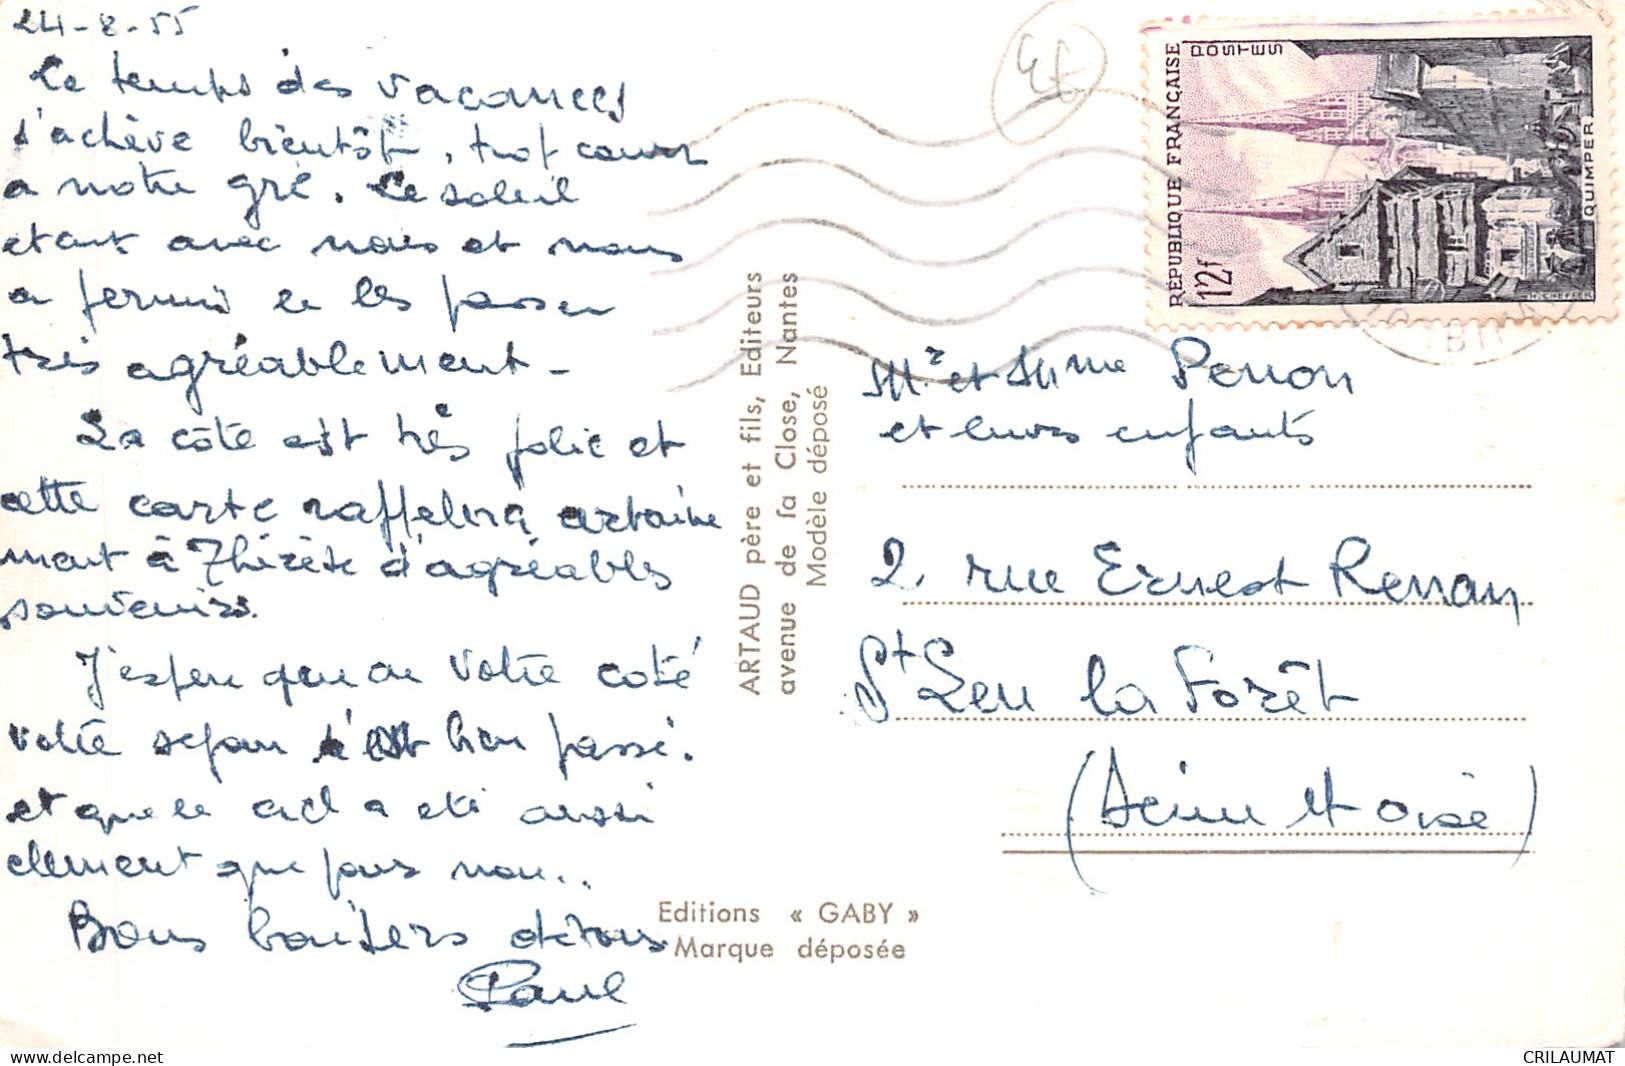 24-8-55
Le temps des vacances
s'achève bientôt, trop court
a notre gré. Le soleil
étant avec nous et nous
a permis de les passer
très agréablement -
La côte est très jolie et
cette carte rappellera certaine
ment à Thérèse d'agréables
souvenirs.
J'espère que de votre coté
votre séjour s'est bien passé.
et que le ciel a été aussi
clément que pour nous..
Bons baisers à tous
Paul
ARTAUD père et fils, Editeurs
avenue de la Close, Nantes
Modèle déposé
Editions « GABY »
Marque déposée
REPUBLIQUE FRANÇAISE
POSTES
12f
QUIMPER
H. CHEFFER
Mr et Mme Perron
et leurs enfants
2 rue Ernest Renan
St Leu la Forêt
(Seine et Oise)
www.delcampe.net
CRILAUMAT